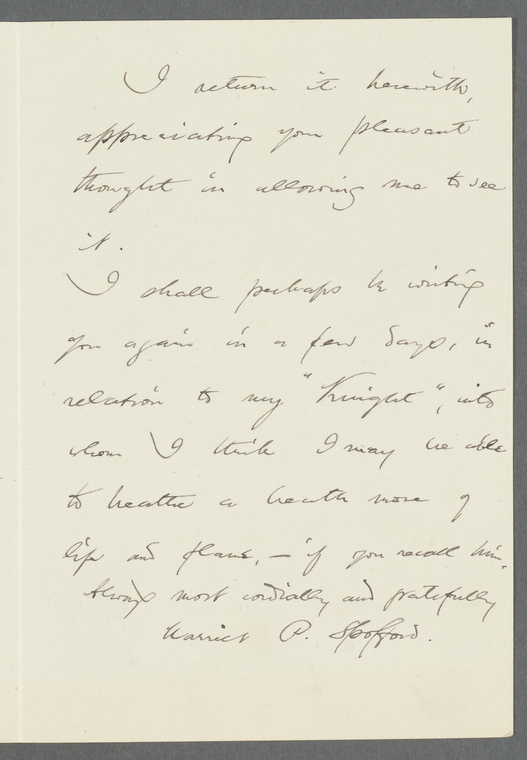 I return it herewith,
appreciating your pleasant
thought in allowing me to see
it.
I shall perhaps be writing
you again in a few days, in
relation to my "Knight", into
whom I think I may be able
to breathe a breath more of
life and flame, — if you recall him.
Always most cordially and gratefully
Harriet P. Spofford.